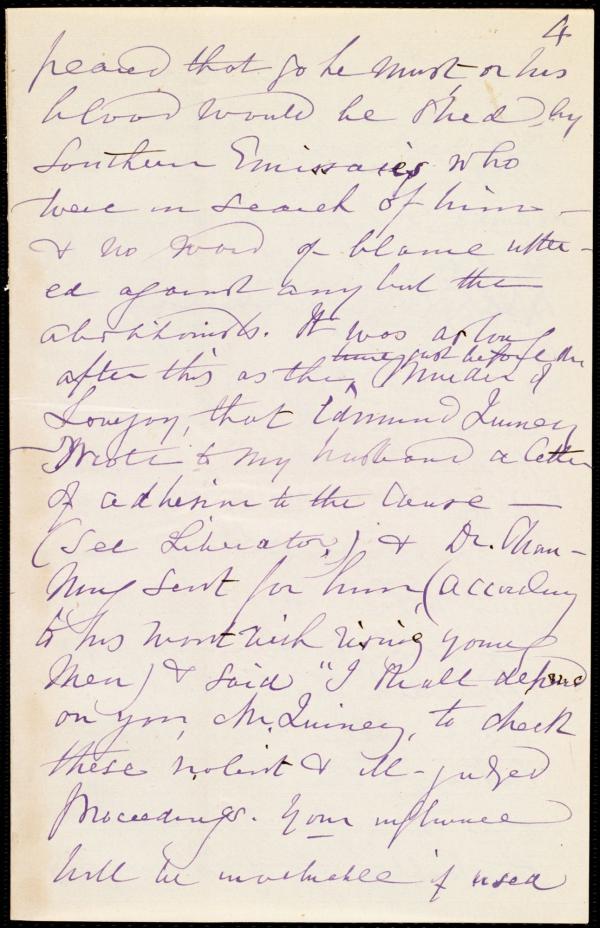 4
peared that go he must, or his
blood would be shed, by
Southern Emissaries who
were in search of him —
& no word of blame utter-
ed against any but the
abolitionists. It was as long
time, just before the
after this as the murder of
Lovejoy, that Edmund Quincy
wrote to my husband a letter
of adhesion to the Cause —
(See Liberator,) & Dr. Chan-
ning sent for him, (according
to his wont with rising young
men) & said "I shall depend
on you, Mr. Quincy, to check
these violent & ill-judged
proceedings. Your influence
will be invaluable if used